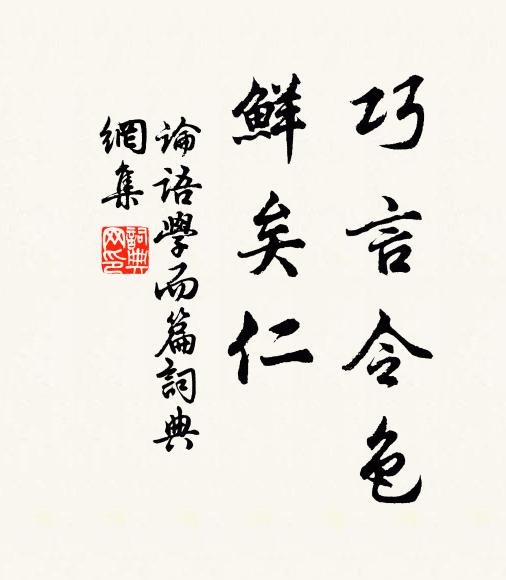 巧言令色
鮮矣仁
論語學而篇詞典
網集
詞典
网印